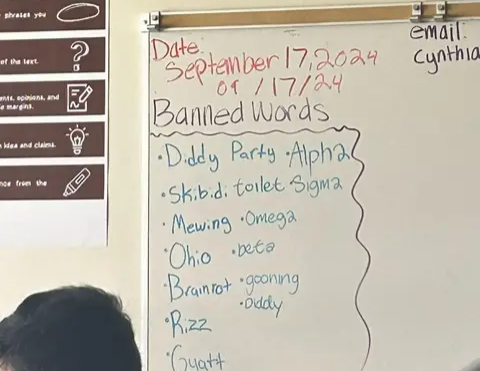 phrases you
of the text.
ents, opinions, and
e margins.
idea and claims.
nce from the
Date:
September 17, 2024
09/17/24
email:
Cynthia
Banned Words
•Diddy Party •Alpha
•Skibidi toilet Sigma
•Mewing •Omega
•Ohio •beta
•Brainrot •gooning
•Diddy
•Rizz
•Gyatt